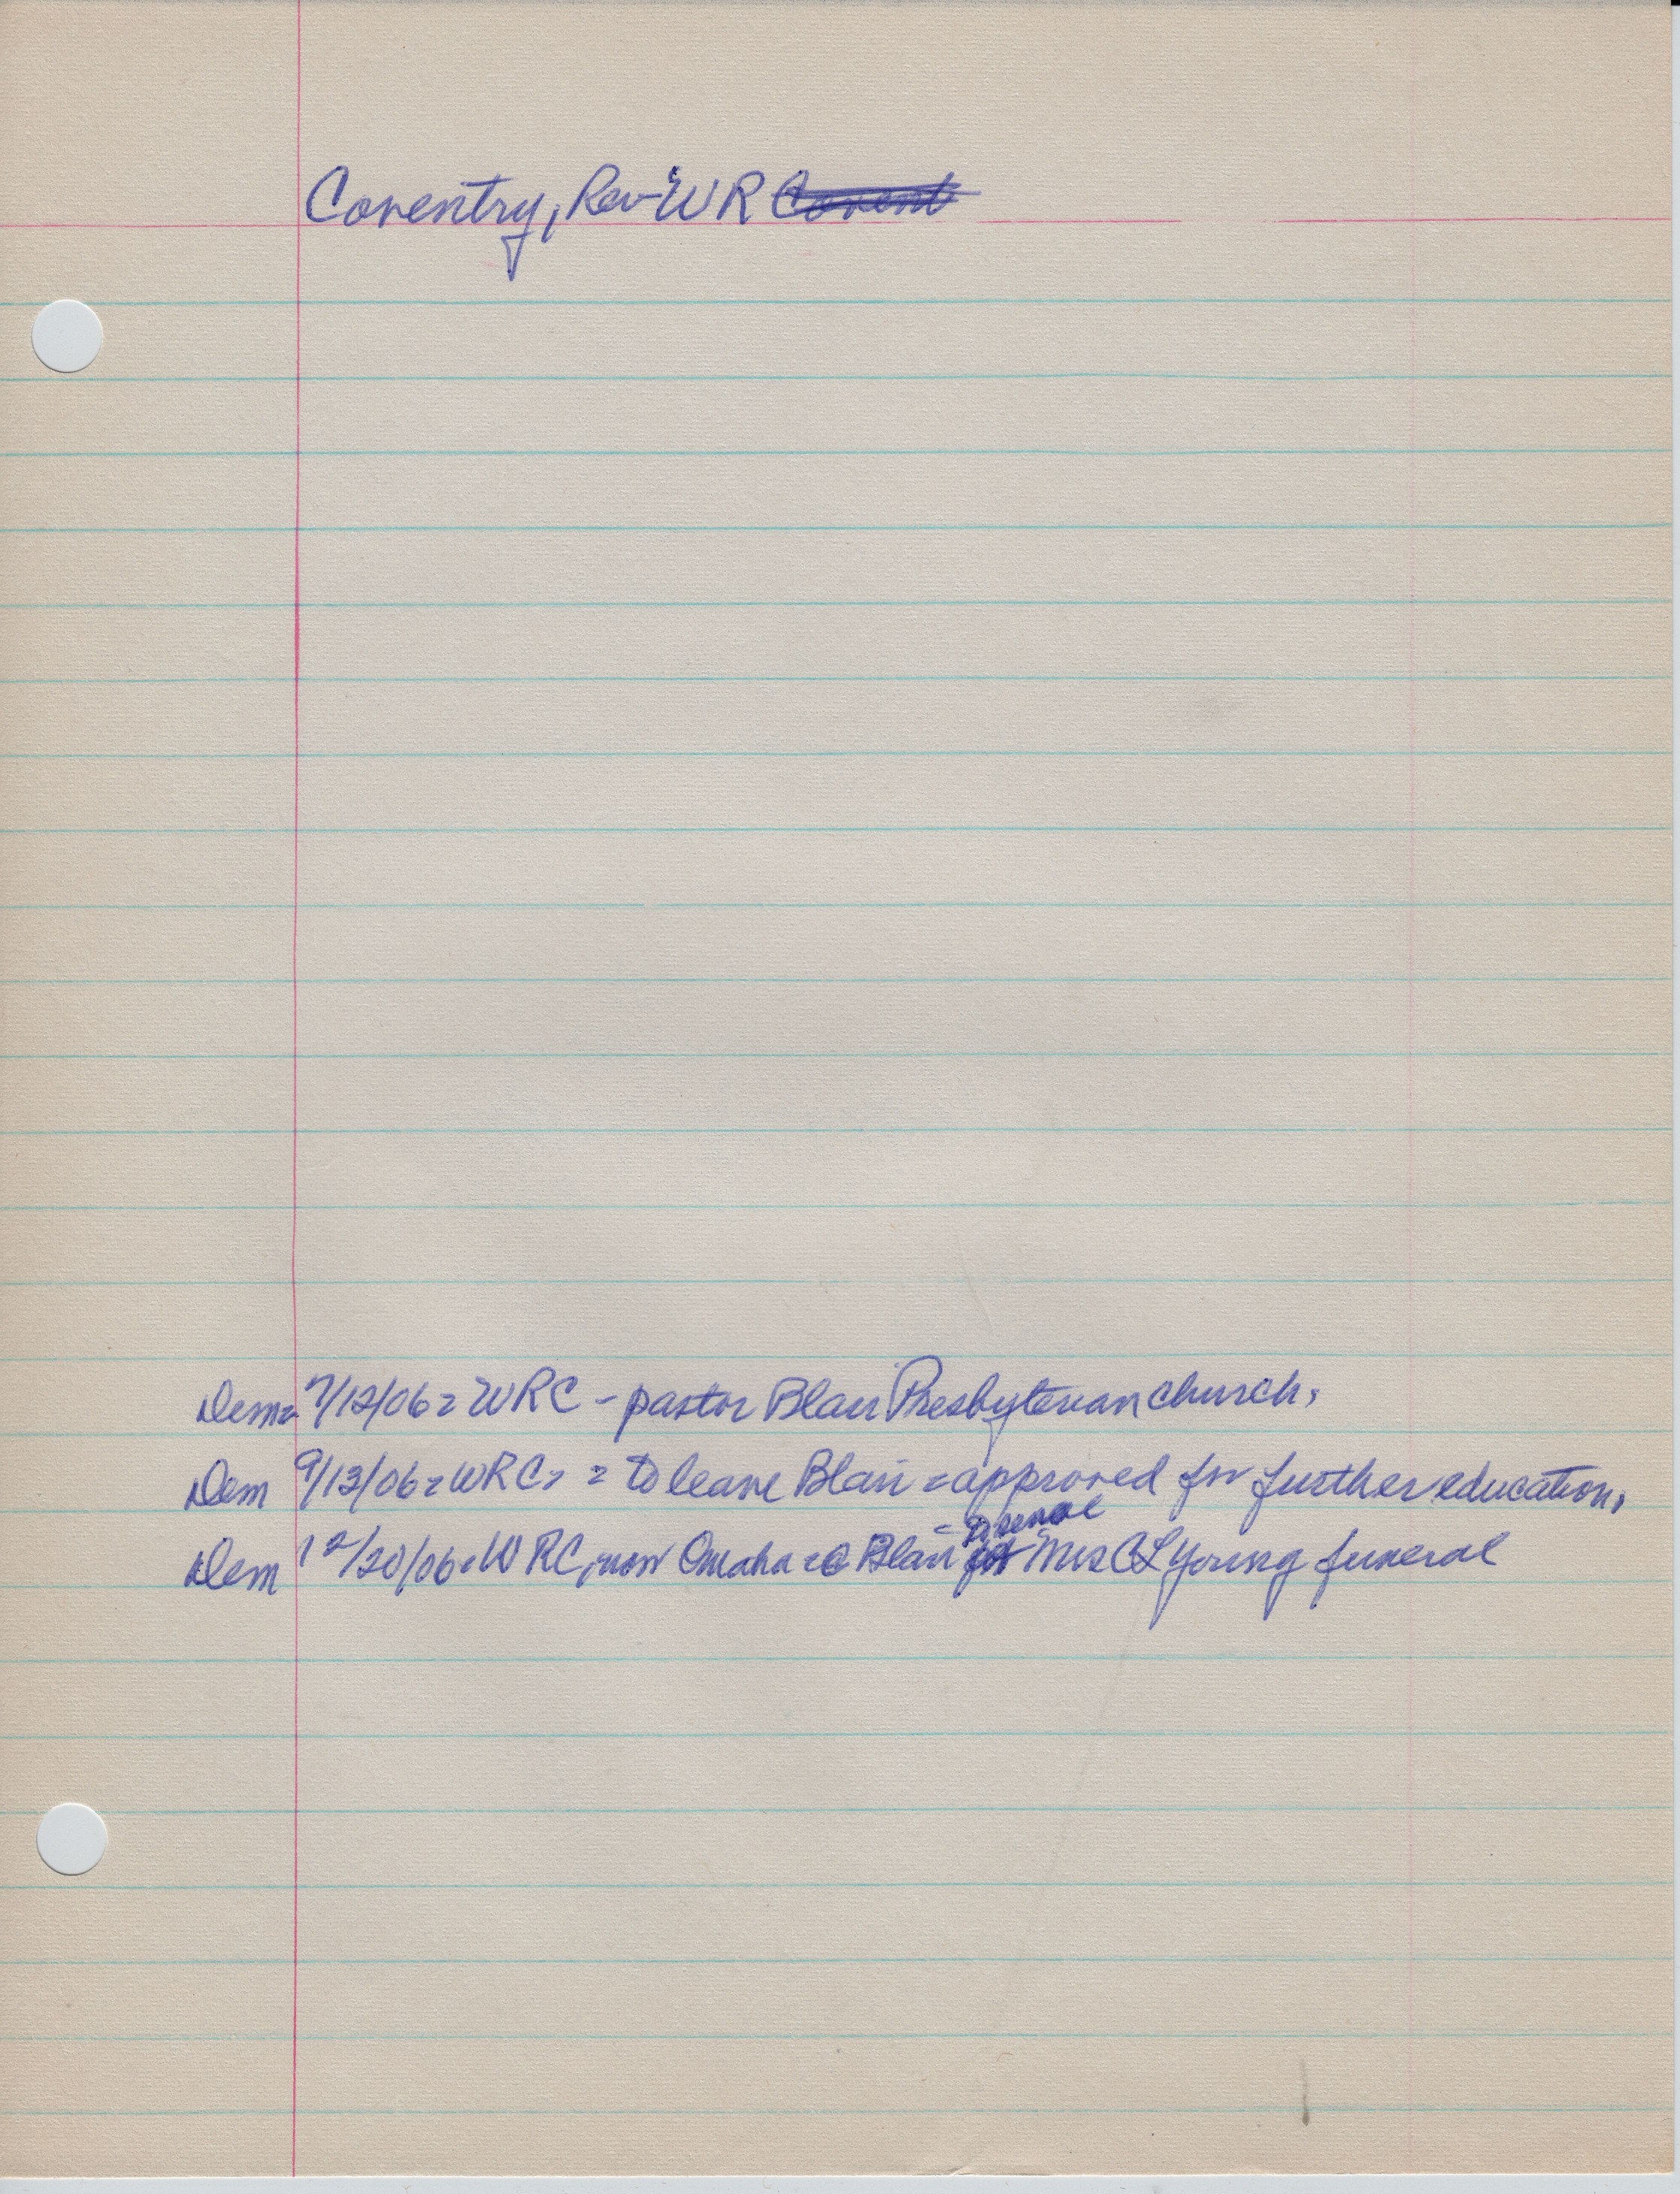 Coventry, Rev WR Covent
Dem = 7/12/06 = WRC - pastor Blair Presbyterian church.
Dem 9/13/06 = WRC = to leave Blair = approved for further education.
Dem 12/20/06 = WRC, now Omaha = @ Blair - Mrs CL Young funeral